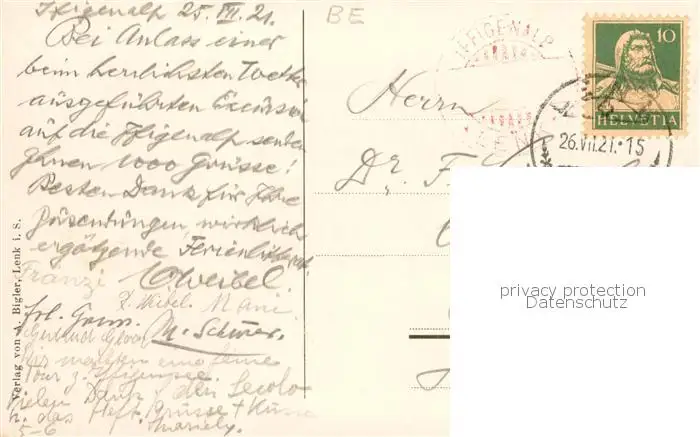 Iffigenalp 25. VII. 21.
Bei Anlass einer
beim herrlichsten Wetter
ausgeführten Excursion
auf die Iffigenalp senden
Ihnen 1000 Grüsse!
Besten Dank für Ihre
Zusendungen, wirklich
ergötzende Ferienlitterat.
Fränzi OWeibel.
F. Weibel. Mani
M. Schürer.
Gertrud
Wir machten eine feine
Tour z. Iffigensee.
Vielen Dank f. den Secolo
u. das Heft. Grüsse + Küsse
5-6 Mariely.
Verlag von A. Bigler, Lenk i. S.
BE
IFFIGENALP
LENK
Herrn
Dr. F.
10
HELVETIA
26.VII.21.15
privacy protection
Datenschutz